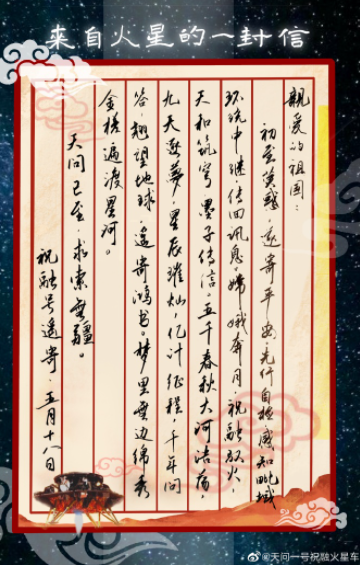 来自火星的一封信
親爱的祖国：
初至荧惑，遥寄平安。先行自檢，感知毗域
环绕中继传回讯息。嫦娥奔月，祝融取火，
天和筑穹，墨子传信。五千春秋大河浩荡，
九天逐夢，星辰璀灿，亿计征程，千年问
答。翘望地球，遥寄鸿书。梦里無边绵秀
金槎遍渡星河。
天问已至，求索無疆。
祝融号遥寄·五月十八日
@天问一号祝融火星车